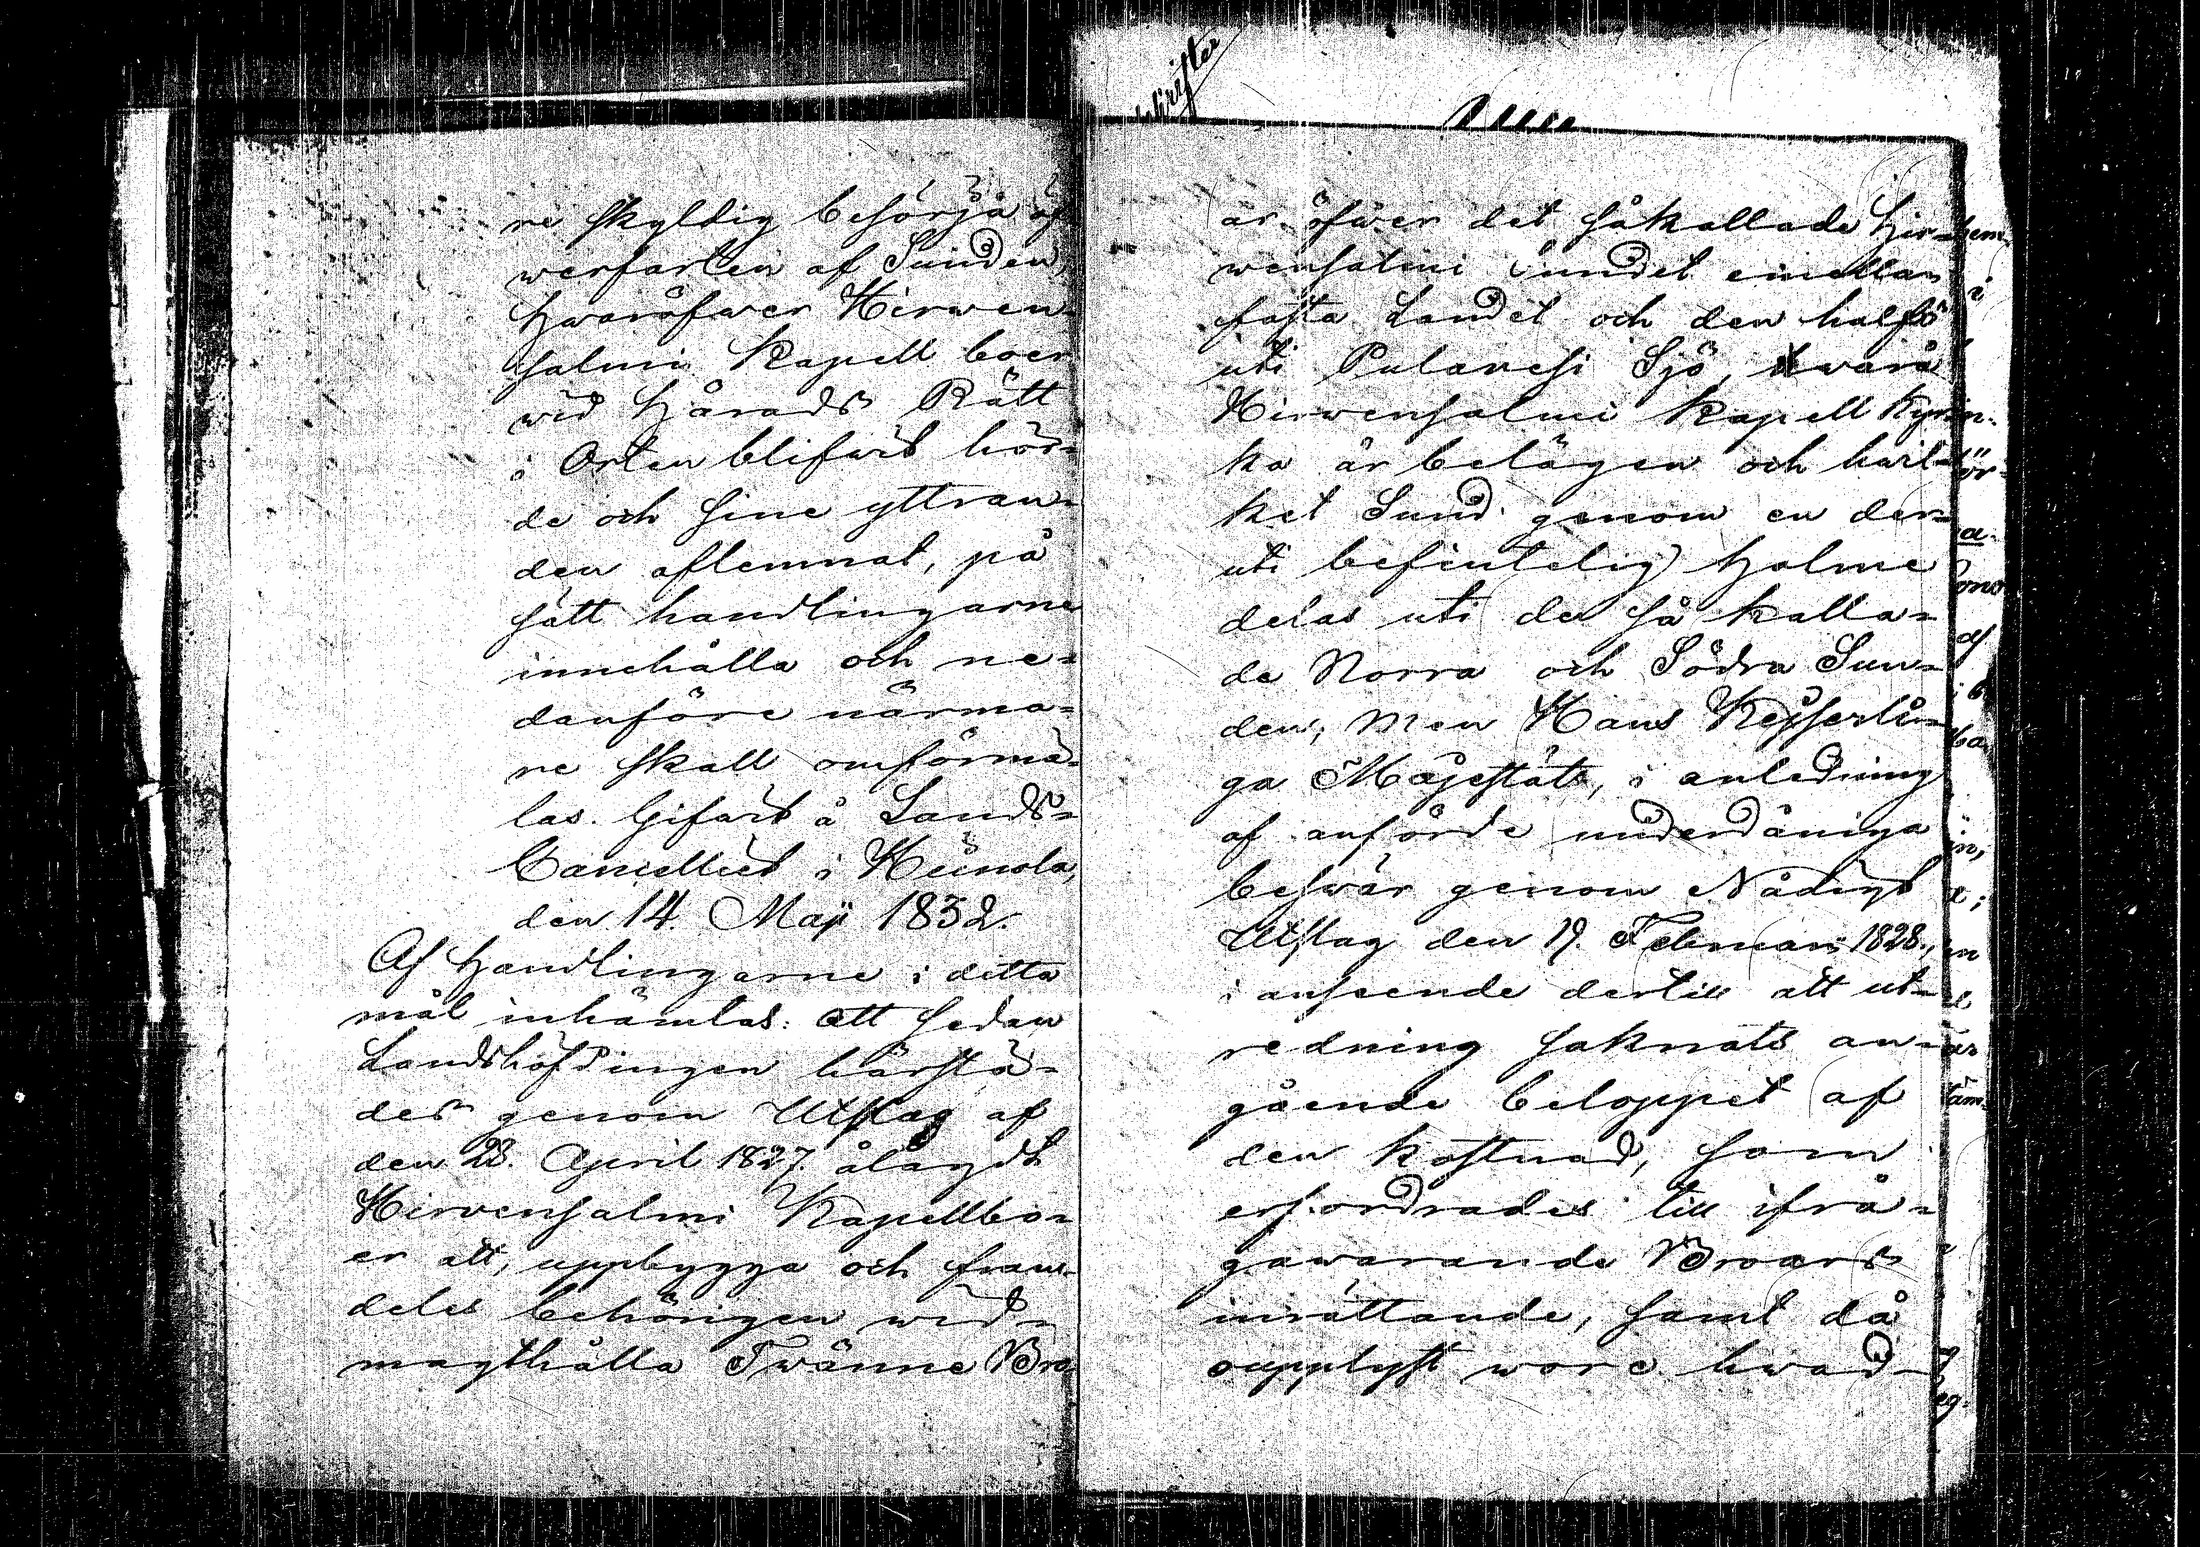 re skyldig besörja öf-
werfarten af Sunden,
hwaröfwer Hirwen-
salmi Kapell boer
wid Härads Rätt
i Orten blifwit hör-
de och sine yttran-
den aflemnat, på
sätt handlingarne
innehålla och ne-
danföre närma-
re skall omförmä-
las. Gifwit å Lands-
Cancelliet i Heinola,
den 14. Maji 1832.
Af Handlingarne i detta
mål inhämtas: att sedan
Landshöfdingen härstä-
des genom Utslag af
den 23. April 1827. ålagdt
Hirvensalmi Kapellbo-
er att, uppbygga och fram-
deles behörigen wid-
magthålla Twänne Bro-
ar öfwer det såkallade Hir-
wensalmi Sundet emellan
fasta Landet och den halfö
uti Pulavesi Sjö, hwarå
Hirwensalmi Kapell Kyr-
ka är belägen och hwil-
ket Sund genom en der-
uti befintelig Holme
delas uti de så kalla-
de Norra och Södra Sun-
den; Men Hans Kejserli-
ga Majestät, i anledning
af anförde underdåniga
beswär genom Nådigt
Utslag den 19. Februari 1828.,
i anseende dertill att ut-
redning saknats an-
gående beloppet af
den kostnad, som
erfordrades till ifrå-
gawarande Broars
inrättande, samt då
oupplyst wore hwad-